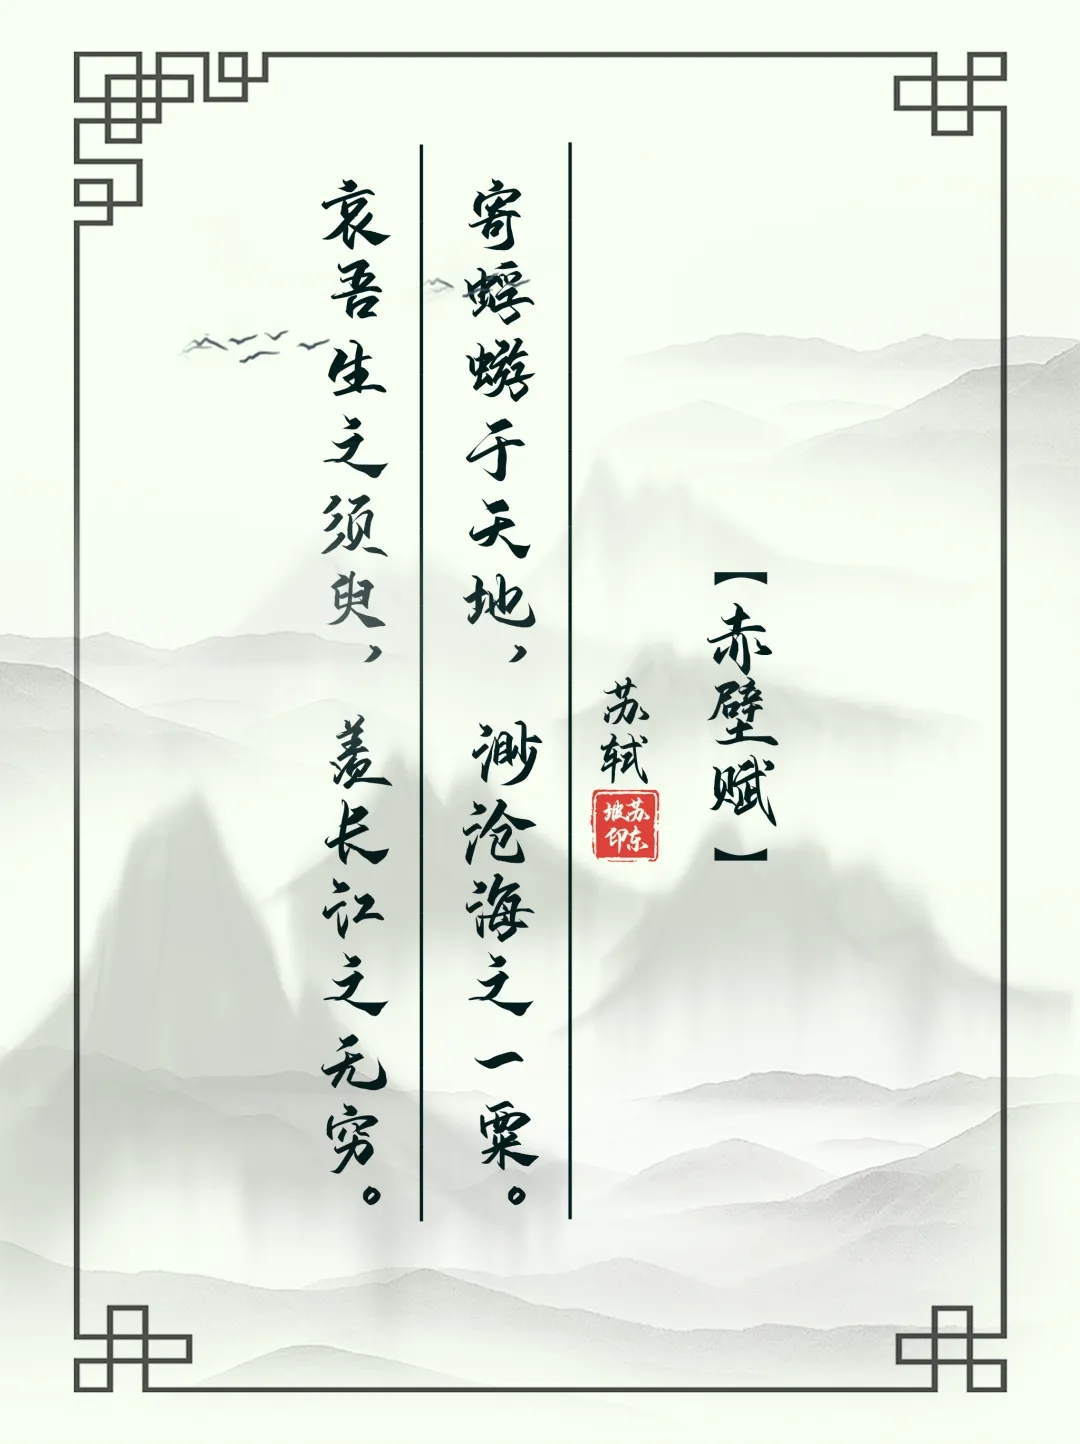 【赤壁赋】
苏轼
苏东
坡印
寄蜉蝣于天地，渺沧海之一粟。
哀吾生之须臾，羡长江之无穷。